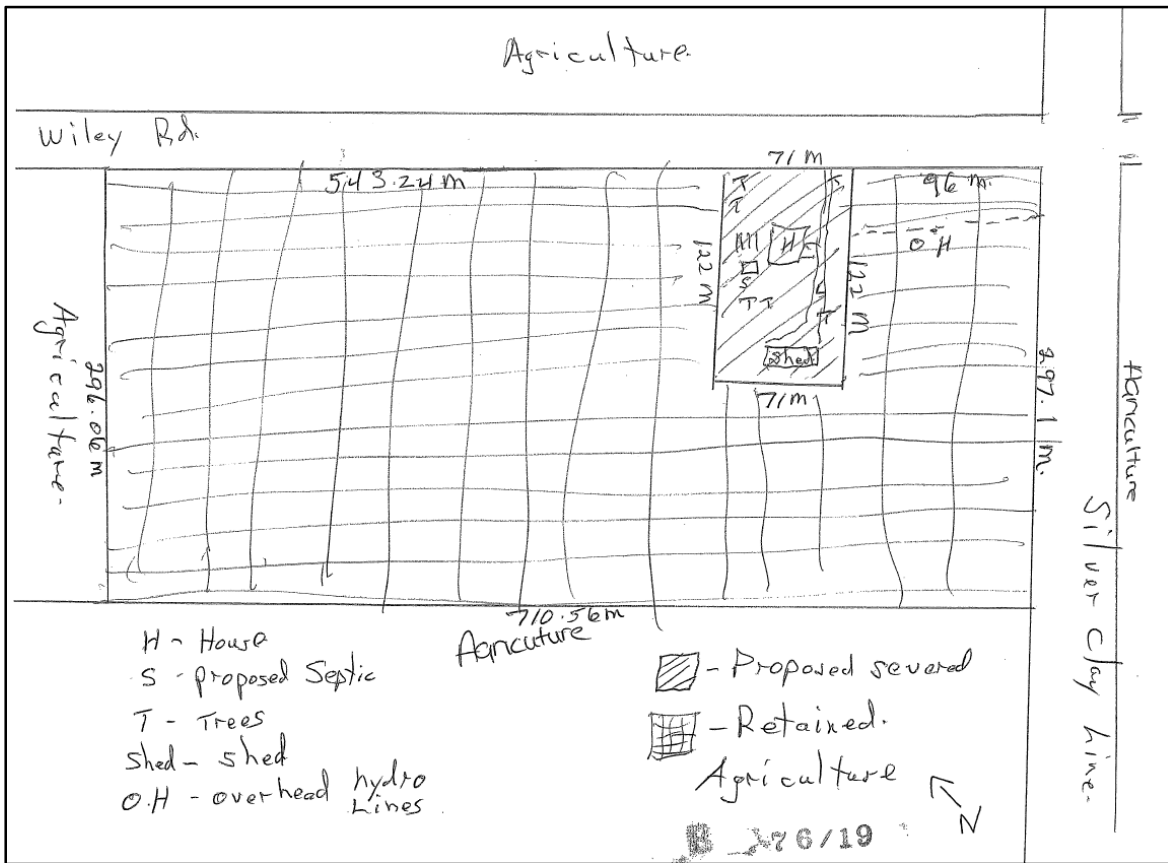 Agriculture
Wiley Rd.
71 M
543.24 m
96 m.
T
T
H
O H
122 m
S
T T
122 M
T
Shed
71 M
Agriculture
296.06 m
297.1 m.
Agriculture
Silver Clay Line.
710.56m
Agricuture
H - House
S - proposed Septic
T - Trees
Shed - shed
O.H - overhead hydro
Lines
- Proposed severed
- Retained.
Agriculture
N
B 76/19